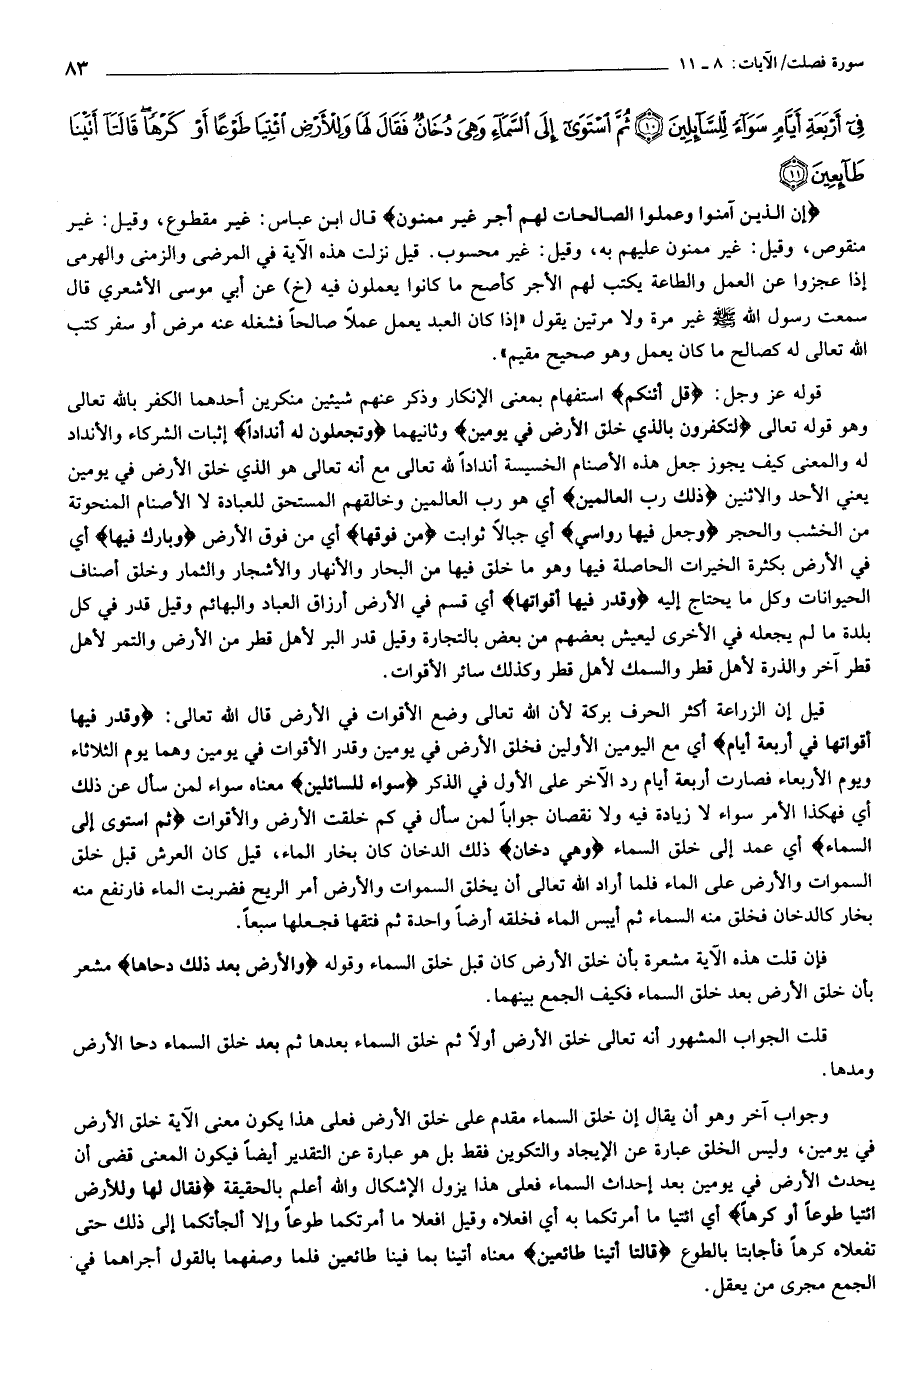 سورة فصلت/ الآيات: ٨ ـ ١١ ٨٣
فِيٓ أَرْبَعَةِ أَيَّامٍ سَوَآءً لِّلسَّآئِلِينَ ۝١٠ ثُمَّ ٱسْتَوَىٰٓ إِلَى ٱلسَّمَآءِ وَهِيَ دُخَانٌ فَقَالَ لَهَا وَلِلْأَرْضِ ٱئْتِيَا طَوْعًا أَوْ كَرْهًا ۖ قَالَتَآ أَتَيْنَا
طَآئِعِينَ ۝١١
﴿إن الذين آمنوا وعملوا الصالحات لهم أجر غير ممنون﴾ قال ابن عباس: غير مقطوع، وقيل: غير
منقوص، وقيل: غير ممنون عليهم به، وقيل: غير محسوب. قيل نزلت هذه الآية في المرضى والزمنى والهرمى
إذا عجزوا عن العمل والطاعة يكتب لهم الأجر كأصح ما كانوا يعملون فيه (خ) عن أبي موسى الأشعري قال
سمعت رسول الله ﷺ غير مرة ولا مرتين يقول «إذا كان العبد يعمل عملاً صالحاً فشغله عنه مرض أو سفر كتب
الله تعالى له كصالح ما كان يعمل وهو صحيح مقيم».
قوله عز وجل: ﴿قل أئنكم﴾ استفهام بمعنى الإنكار وذكر عنهم شيئين منكرين أحدهما الكفر بالله تعالى
وهو قوله تعالى ﴿لتكفرون بالذي خلق الأرض في يومين﴾ وثانيهما ﴿وتجعلون له أنداداً﴾ إثبات الشركاء والأنداد
له والمعنى كيف يجوز جعل هذه الأصنام الخسيسة أنداداً لله تعالى مع أنه تعالى هو الذي خلق الأرض في يومين
يعني الأحد والاثنين ﴿ذلك رب العالمين﴾ أي هو رب العالمين وخالقهم المستحق للعبادة لا الأصنام المنحوتة
من الخشب والحجر ﴿وجعل فيها رواسي﴾ أي جبالاً ثوابت ﴿من فوقها﴾ أي من فوق الأرض ﴿وبارك فيها﴾ أي
في الأرض بكثرة الخيرات الحاصلة فيها وهو ما خلق فيها من البحار والأنهار والأشجار والثمار وخلق أصناف
الحيوانات وكل ما يحتاج إليه ﴿وقدر فيها أقواتها﴾ أي قسم في الأرض أرزاق العباد والبهائم وقيل قدر في كل
بلدة ما لم يجعله في الأخرى ليعيش بعضهم من بعض بالتجارة وقيل قدر البر لأهل قطر من الأرض والتمر لأهل
قطر آخر والذرة لأهل قطر والسمك لأهل قطر وكذلك سائر الأقوات.
قيل إن الزراعة أكثر الحرف بركة لأن الله تعالى وضع الأقوات في الأرض قال الله تعالى: ﴿وقدر فيها
أقواتها في أربعة أيام﴾ أي مع اليومين الأولين فخلق الأرض في يومين وقدر الأقوات في يومين وهما يوم الثلاثاء
ويوم الأربعاء فصارت أربعة أيام رد الآخر على الأول في الذكر ﴿سواء للسائلين﴾ معناه سواء لمن سأل عن ذلك
أي فهكذا الأمر سواء لا زيادة فيه ولا نقصان جواباً لمن سأل في كم خلقت الأرض والأقوات ﴿ثم استوى إلى
السماء﴾ أي عمد إلى خلق السماء ﴿وهي دخان﴾ ذلك الدخان كان بخار الماء، قيل كان العرش قبل خلق
السموات والأرض على الماء فلما أراد الله تعالى أن يخلق السموات والأرض أمر الريح فضربت الماء فارتفع منه
بخار كالدخان فخلق منه السماء ثم أيبس الماء فخلقه أرضاً واحدة ثم فتقها فجعلها سبعاً.
فإن قلت هذه الآية مشعرة بأن خلق الأرض كان قبل خلق السماء وقوله ﴿والأرض بعد ذلك دحاها﴾ مشعر
بأن خلق الأرض بعد خلق السماء فكيف الجمع بينهما.
قلت الجواب المشهور أنه تعالى خلق الأرض أولاً ثم خلق السماء بعدها ثم بعد خلق السماء دحا الأرض
ومدها.
وجواب آخر وهو أن يقال إن خلق السماء مقدم على خلق الأرض فعلى هذا يكون معنى الآية خلق الأرض
في يومين، وليس الخلق عبارة عن الإيجاد والتكوين فقط بل هو عبارة عن التقدير أيضاً فيكون المعنى قضى أن
يحدث الأرض في يومين بعد إحداث السماء فعلى هذا يزول الإشكال والله أعلم بالحقيقة ﴿فقال لها وللأرض
ائتيا طوعاً أو كرهاً﴾ أي ائتيا ما أمرتكما به أي افعلاه وقيل افعلا ما أمرتكما طوعاً وإلا ألجأتكما إلى ذلك حتى
تفعلاه كرهاً فأجابتا بالطوع ﴿قالتا أتينا طائعين﴾ معناه أتينا بما فينا طائعين فلما وصفهما بالقول أجراهما في
الجمع مجرى من يعقل.